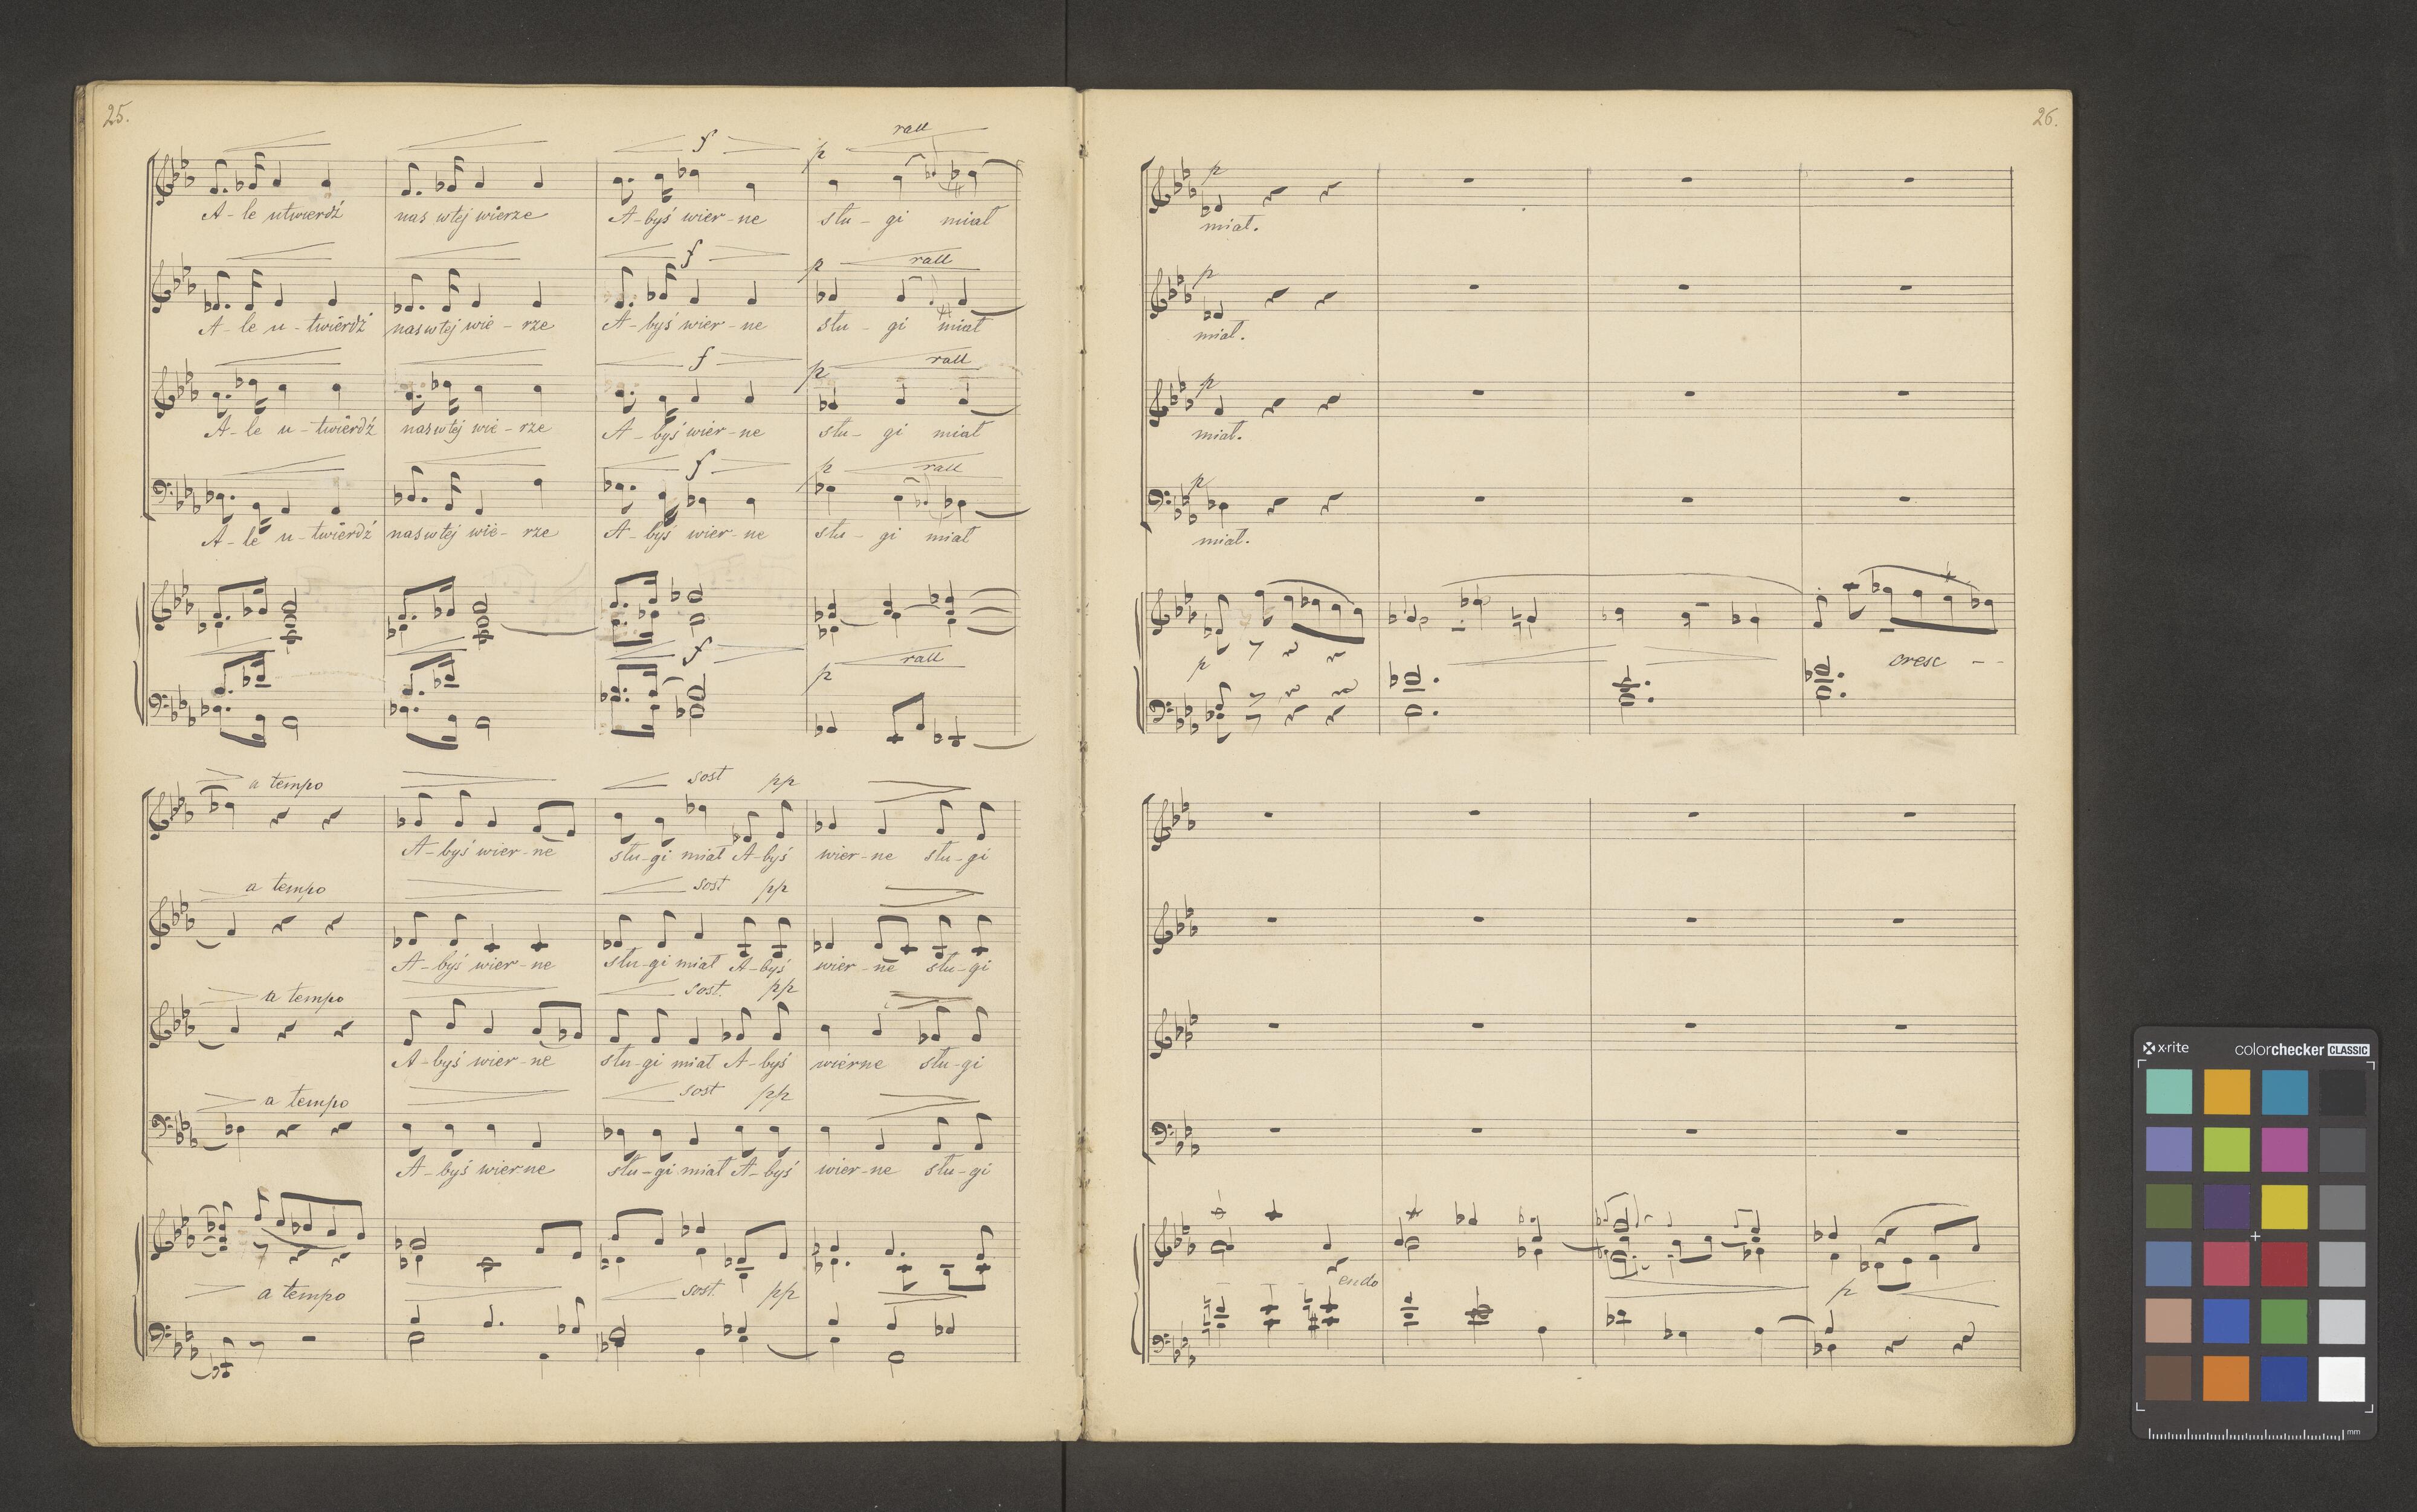 25.
rall
f p
A-le utwierdź nas wtej wierze A-byś wier-ne słu-gi miał
f p rall
A-le u-twierdź nas wtej wie-rze A-byś wier-ne słu-gi miał
f p rall
A-le u-twierdź nas wtej wie-rze A-byś wier-ne słu-gi miał
f p rall
A-le u-twierdź nas wtej wie-rze A-byś wier-ne słu-gi miał
f p rall
a tempo sost pp
A-byś wier-ne słu-gi miał A-byś wier-ne słu-gi
a tempo sost pp
A-byś wier-ne słu-gi miał A-byś wier-ne słu-gi
a tempo sost. pp
A-byś wier-ne słu-gi miał A-byś wierne słu-gi
a tempo sost pp
A-byś wierne słu-gi miał A-byś wier-ne słu-gi
a tempo sost. pp
26.
p
miał.
p
miał.
p
miał.
p
miał.
p cresc - -
endo p
x-rite colorchecker CLASSIC
mm